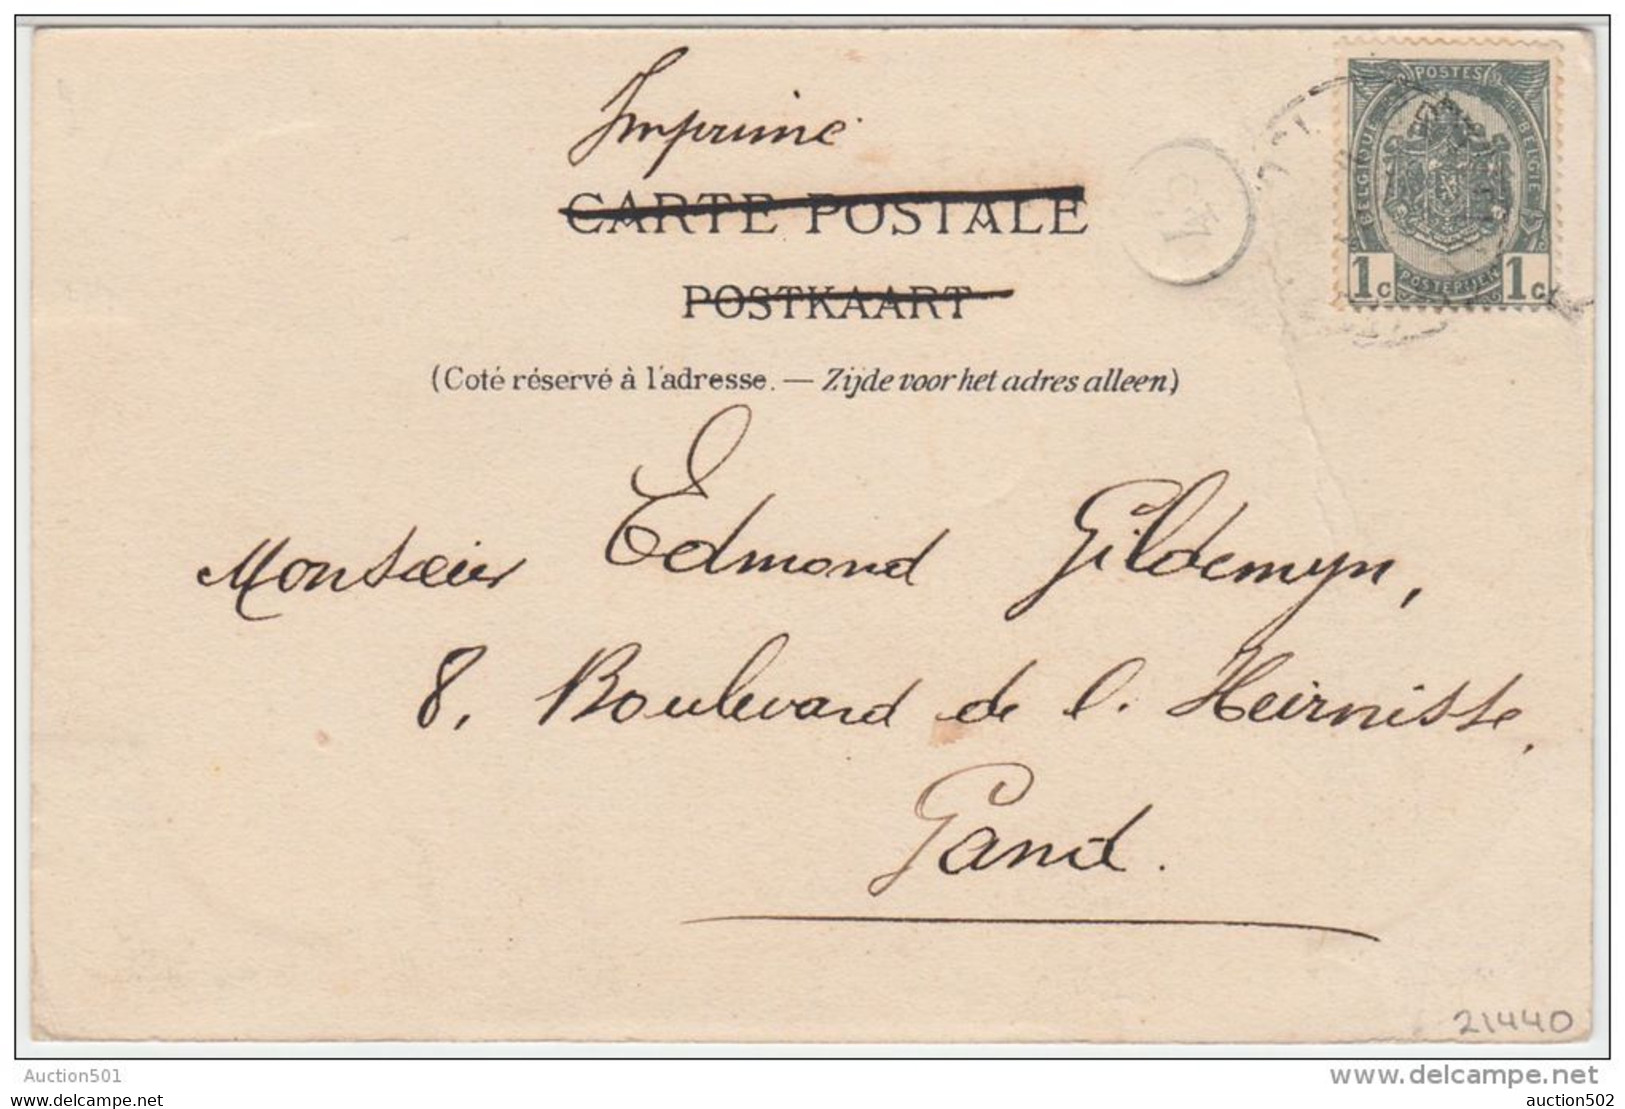 Imprimé
CARTE POSTALE
POSTKAART
(Coté réservé à l'adresse. — Zijde voor het adres alleen)
POSTES
BELGIQUE BELGIË
POSTERIJEN
1c 1c
Monsieur Edmond Gildemyn,
8, Boulevard de l. Heirnisse,
Gand.
21440
Auction501
www.delcampe.net
auction502
auction502